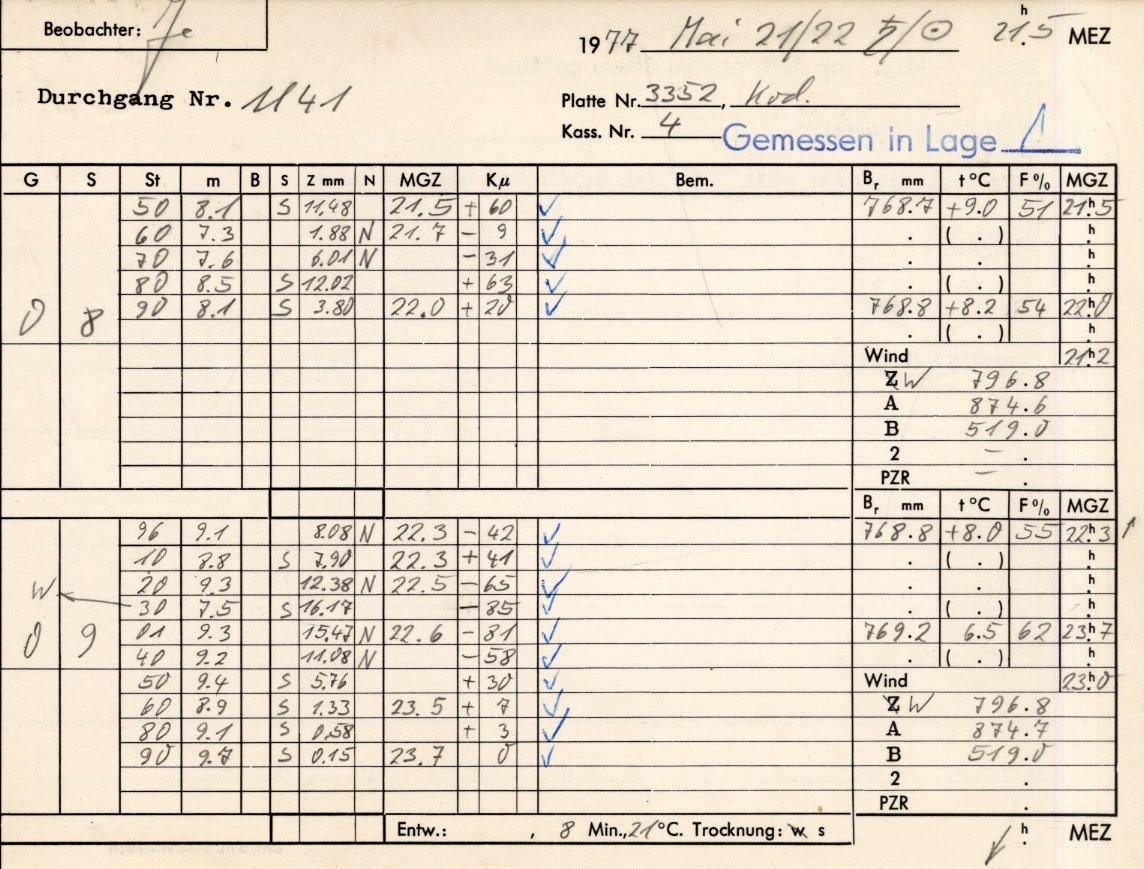 Beobachter: Je
1977 Mai 21/22 ♄/☉ 21.ʰ5 MEZ
Durchgang Nr. 1141
Platte Nr. 3352, Kod.
Kass. Nr. 4 Gemessen in Lage 1
G S St m B S Z mm N MGZ Kμ Bem. Bᵣ mm t°C F% MGZ
50 8.1 S 11.48 21.5 + 60 ✓ 768.7 +9.0 51 21ʰ.5
60 7.3 1.88 N 21.7 - 9 ✓ . ( . ) ʰ.
70 7.6 6.01 N - 31 ✓ . ʰ.
80 8.5 S 12.02 + 63 ✓ . ( . ) ʰ.
0 8 90 8.1 S 3.80 22.0 + 20 ✓ 768.8 +8.2 54 22ʰ.0
. ( . ) ʰ.
Wind 21ʰ.2
Z W 796.8
A 874.6
B 519.0
2 – .
PZR – .
Bᵣ mm t°C F% MGZ
96 9.1 8.08 N 22.3 - 42 ✓ 768.8 +8.0 55 22ʰ.3 ↑
10 8.8 S 7.90 22.3 + 41 ✓ . ( . ) ʰ.
20 9.3 12.38 N 22.5 - 65 ✓ . ʰ.
W ← 30 7.5 S 16.17 - 85 ✓ . ( . ) ʰ.
0 9 01 9.3 15.47 N 22.6 - 81 ✓ 769.2 6.5 62 23ʰ.7
40 9.2 11.08 N - 58 ✓ . ( . ) ʰ.
50 9.4 S 5.76 + 30 ✓ Wind 23ʰ.0
60 8.9 S 1.33 23.5 + 7 ✓ Z W 796.8
80 9.1 S 0.58 + 3 ✓ A 874.7
90 9.7 S 0.15 23.7 0 ✓ B 519.0
2 .
PZR .
Entw.: , 8 Min., 21°C. Trocknung: w s ʰ. MEZ